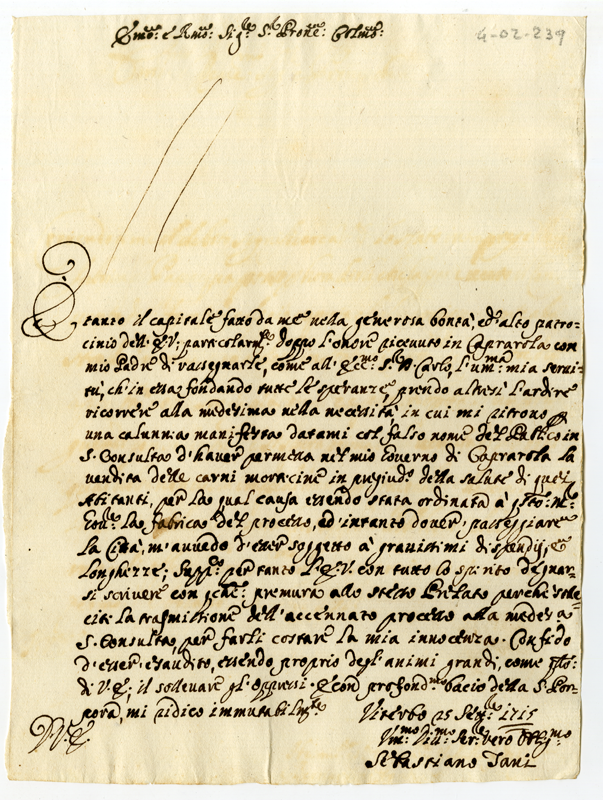 Em.mo e R.mo Sig.re S.r Prone. Colmo.
4-02-239
È tanto il capitale fatto da me nella generosa bontà, ed' alto patro-
cinio dell' E.V: particolarm.te doppo l'onore ricevuto in Caprarola con
mio Padre di rassegnarle, come all' Ecc.mo S.r D. Carlo, l'um.ma mia servi-
tù, ch' in essa fondando tutte le speranze, prendo altresì l'ardire
ricorrere alla medesima nella necessità in cui mi ritrovo
una calunnia manifesta datami col falso nome del Publico in
S. Consulta d'haver permessa nel mio Governo di Caprarola la
vendita delle carni moracine in pregiud.o della salute di quei
Abitanti, per la qual causa essendo stata ordinata à q.sto M.r
Gov.re la fabrica del processo, ed intanto dover passeggiare
la Città, m'avvedo d'esser soggetto à gravissimi dispendij, e
longhezze; Supp.co per tanto l'E.V. con tutto lo spirito degnar-
si scrivere con q.che premura allo stesso Prelato perche solle-
citi la trasmissione dell' accennato processo alla medes.a
S. Consulta, per farli costare la mia innocenza. Confido
d'esser esaudito, essendo proprio degl' animi grandi, come q.llo
di V.E; il sollevare gl' oppressi. E con profond.mo bacio della S. Por-
pora, mi ridico immutabilm.te
Viterbo 15 1715
D.V.E.
Um.mo Div.mo Ser.re vero Obblig.mo
Sebastiano